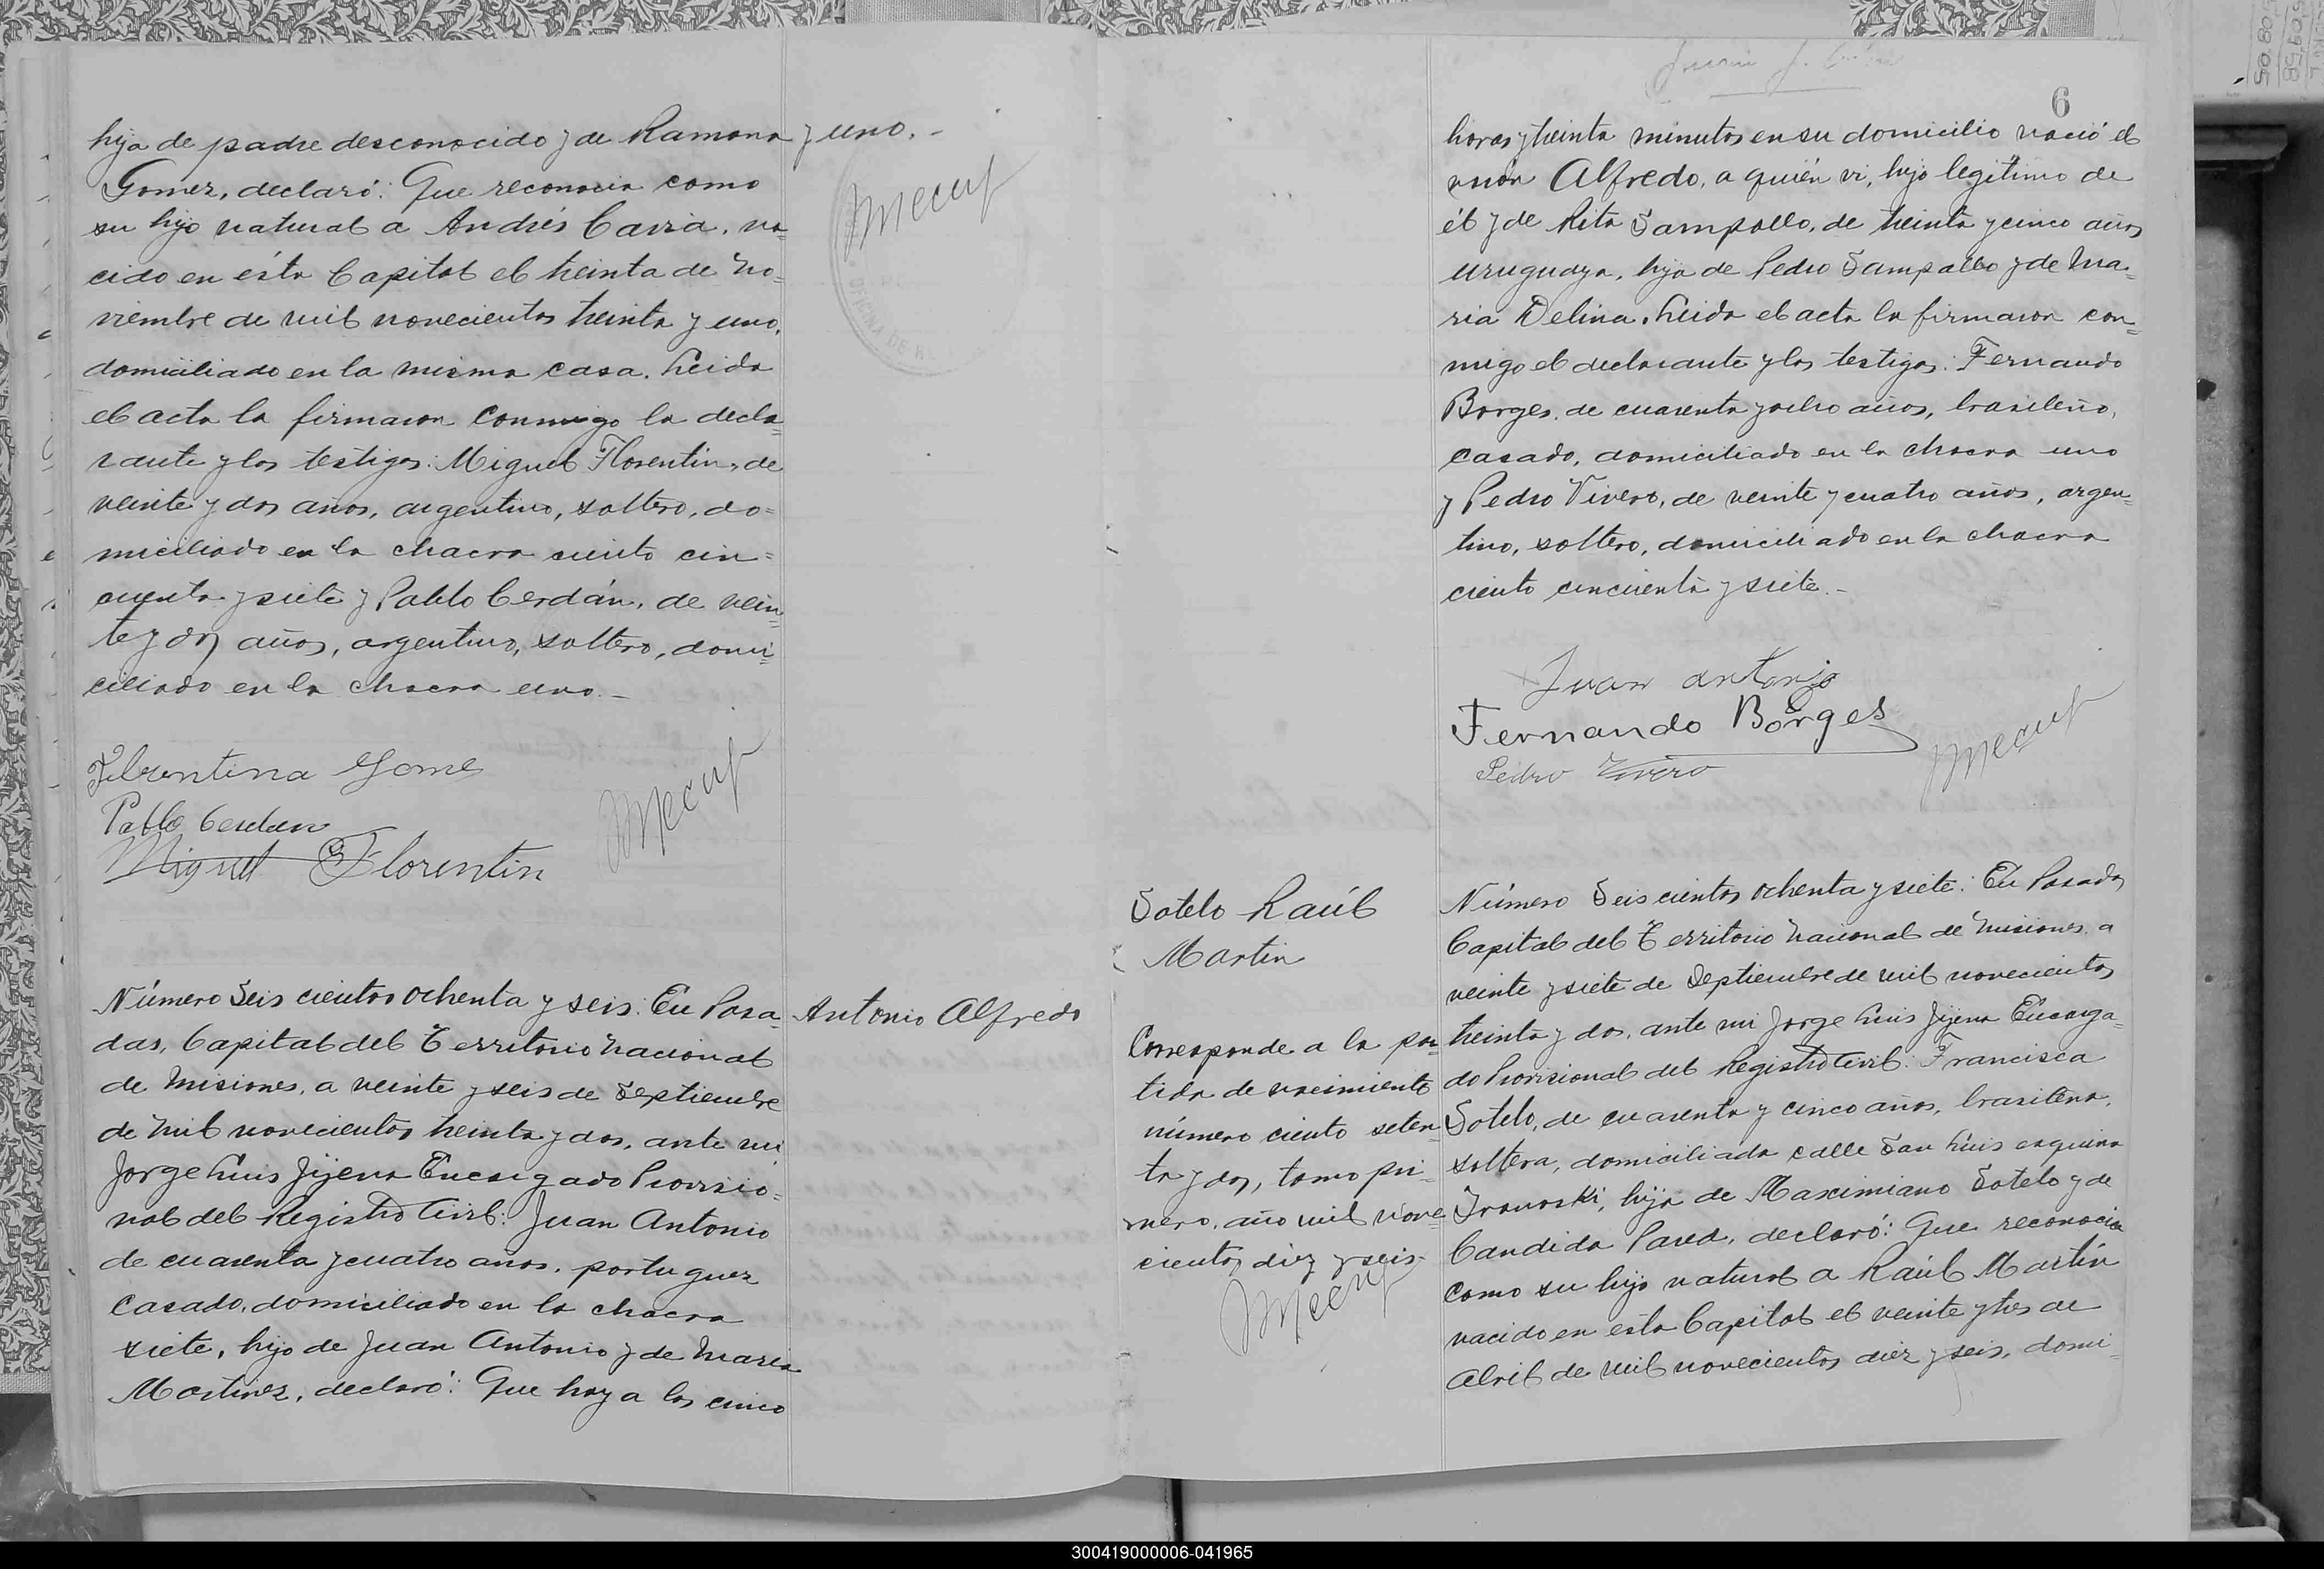 hija de padre desconocido y de Ramona
Gomez, declaró: Que reconocia como
su hijo natural a Andrés Carra, na=
cido en ésta Capital el treinta de No=
viembre de mil novecientos treinta y uno,
domiciliado en la misma casa. Leida
el acta la firmaron conmigo la decla=
rante y los testigos: Miguel Florentin, de
veinte y dos años, argentino, soltero, do=
miciliado en la chacra ciento cin=
cuenta y siete y Pablo Cerdán, de vein=
te y dos años, argentino, soltero, domi=
ciliado en la chacra uno.-
y uno.-
OFICINA DE
Florentina Gome
Pablo Cerdan
Miguel Florentin
Número Seis cientos ochenta y seis: En Posa=
das, Capital del Territorio Nacional
de Misiones, a veinte y seis de Septiembre
de mil novecientos treinta y dos, ante mi
Jorge Luis Jijena Encargado Provisio=
nal del Registro Civil: Juan Antonio
de cuarenta y cuatro años, portuguez
casado, domiciliado en la chacra
siete, hijo de Juan Antonio y de Maria
Martinez, declaró: Que hoy a las cinco
Antonio Alfredo
6
horas y treinta minutos en su domicilio nació el
varón Alfredo, a quién vi, hijo legítimo de
él y de Rita Sampallo, de treinta y cinco años
uruguaya, hija de Pedro Sampallo y de Ma=
ria Delina. Leida el acta la firmaron con=
migo el declarante y los testigos: Fernando
Borges, de cuarenta y ocho años, brasileño,
casado, domiciliado en la chacra uno
y Pedro Vivero, de veinte y cuatro años, argen=
tino, soltero, domiciliado en la chacra
ciento cincuenta y siete.-
Juan antonio
Fernando Borges
Pedro Vivero
Sotelo Raúl
Martin
Corresponde a la par=
tida de nacimiento
número ciento seten=
ta y dos, tomo pri=
mero, año mil nove=
cientos diez y seis.
Número Seis cientos ochenta y siete: En Posadas
Capital del Territorio Nacional de Misiones, a
veinte y siete de Septiembre de mil novecientos
treinta y dos, ante mi Jorge Luis Jijena Encarga=
do Provisional del Registro Civil: Francisca
Sotelo, de cuarenta y cinco años, brasilena,
soltera, domiciliada calle San Luis esquina
hija de Maximiano Sotelo y de
Candida declaró: Que reconocia
como su hijo natural a Raúl Martín
nacido en ésta Capital el veinte y tres de
Abril de mil novecientos diez y seis, domi=
300419000006-041965